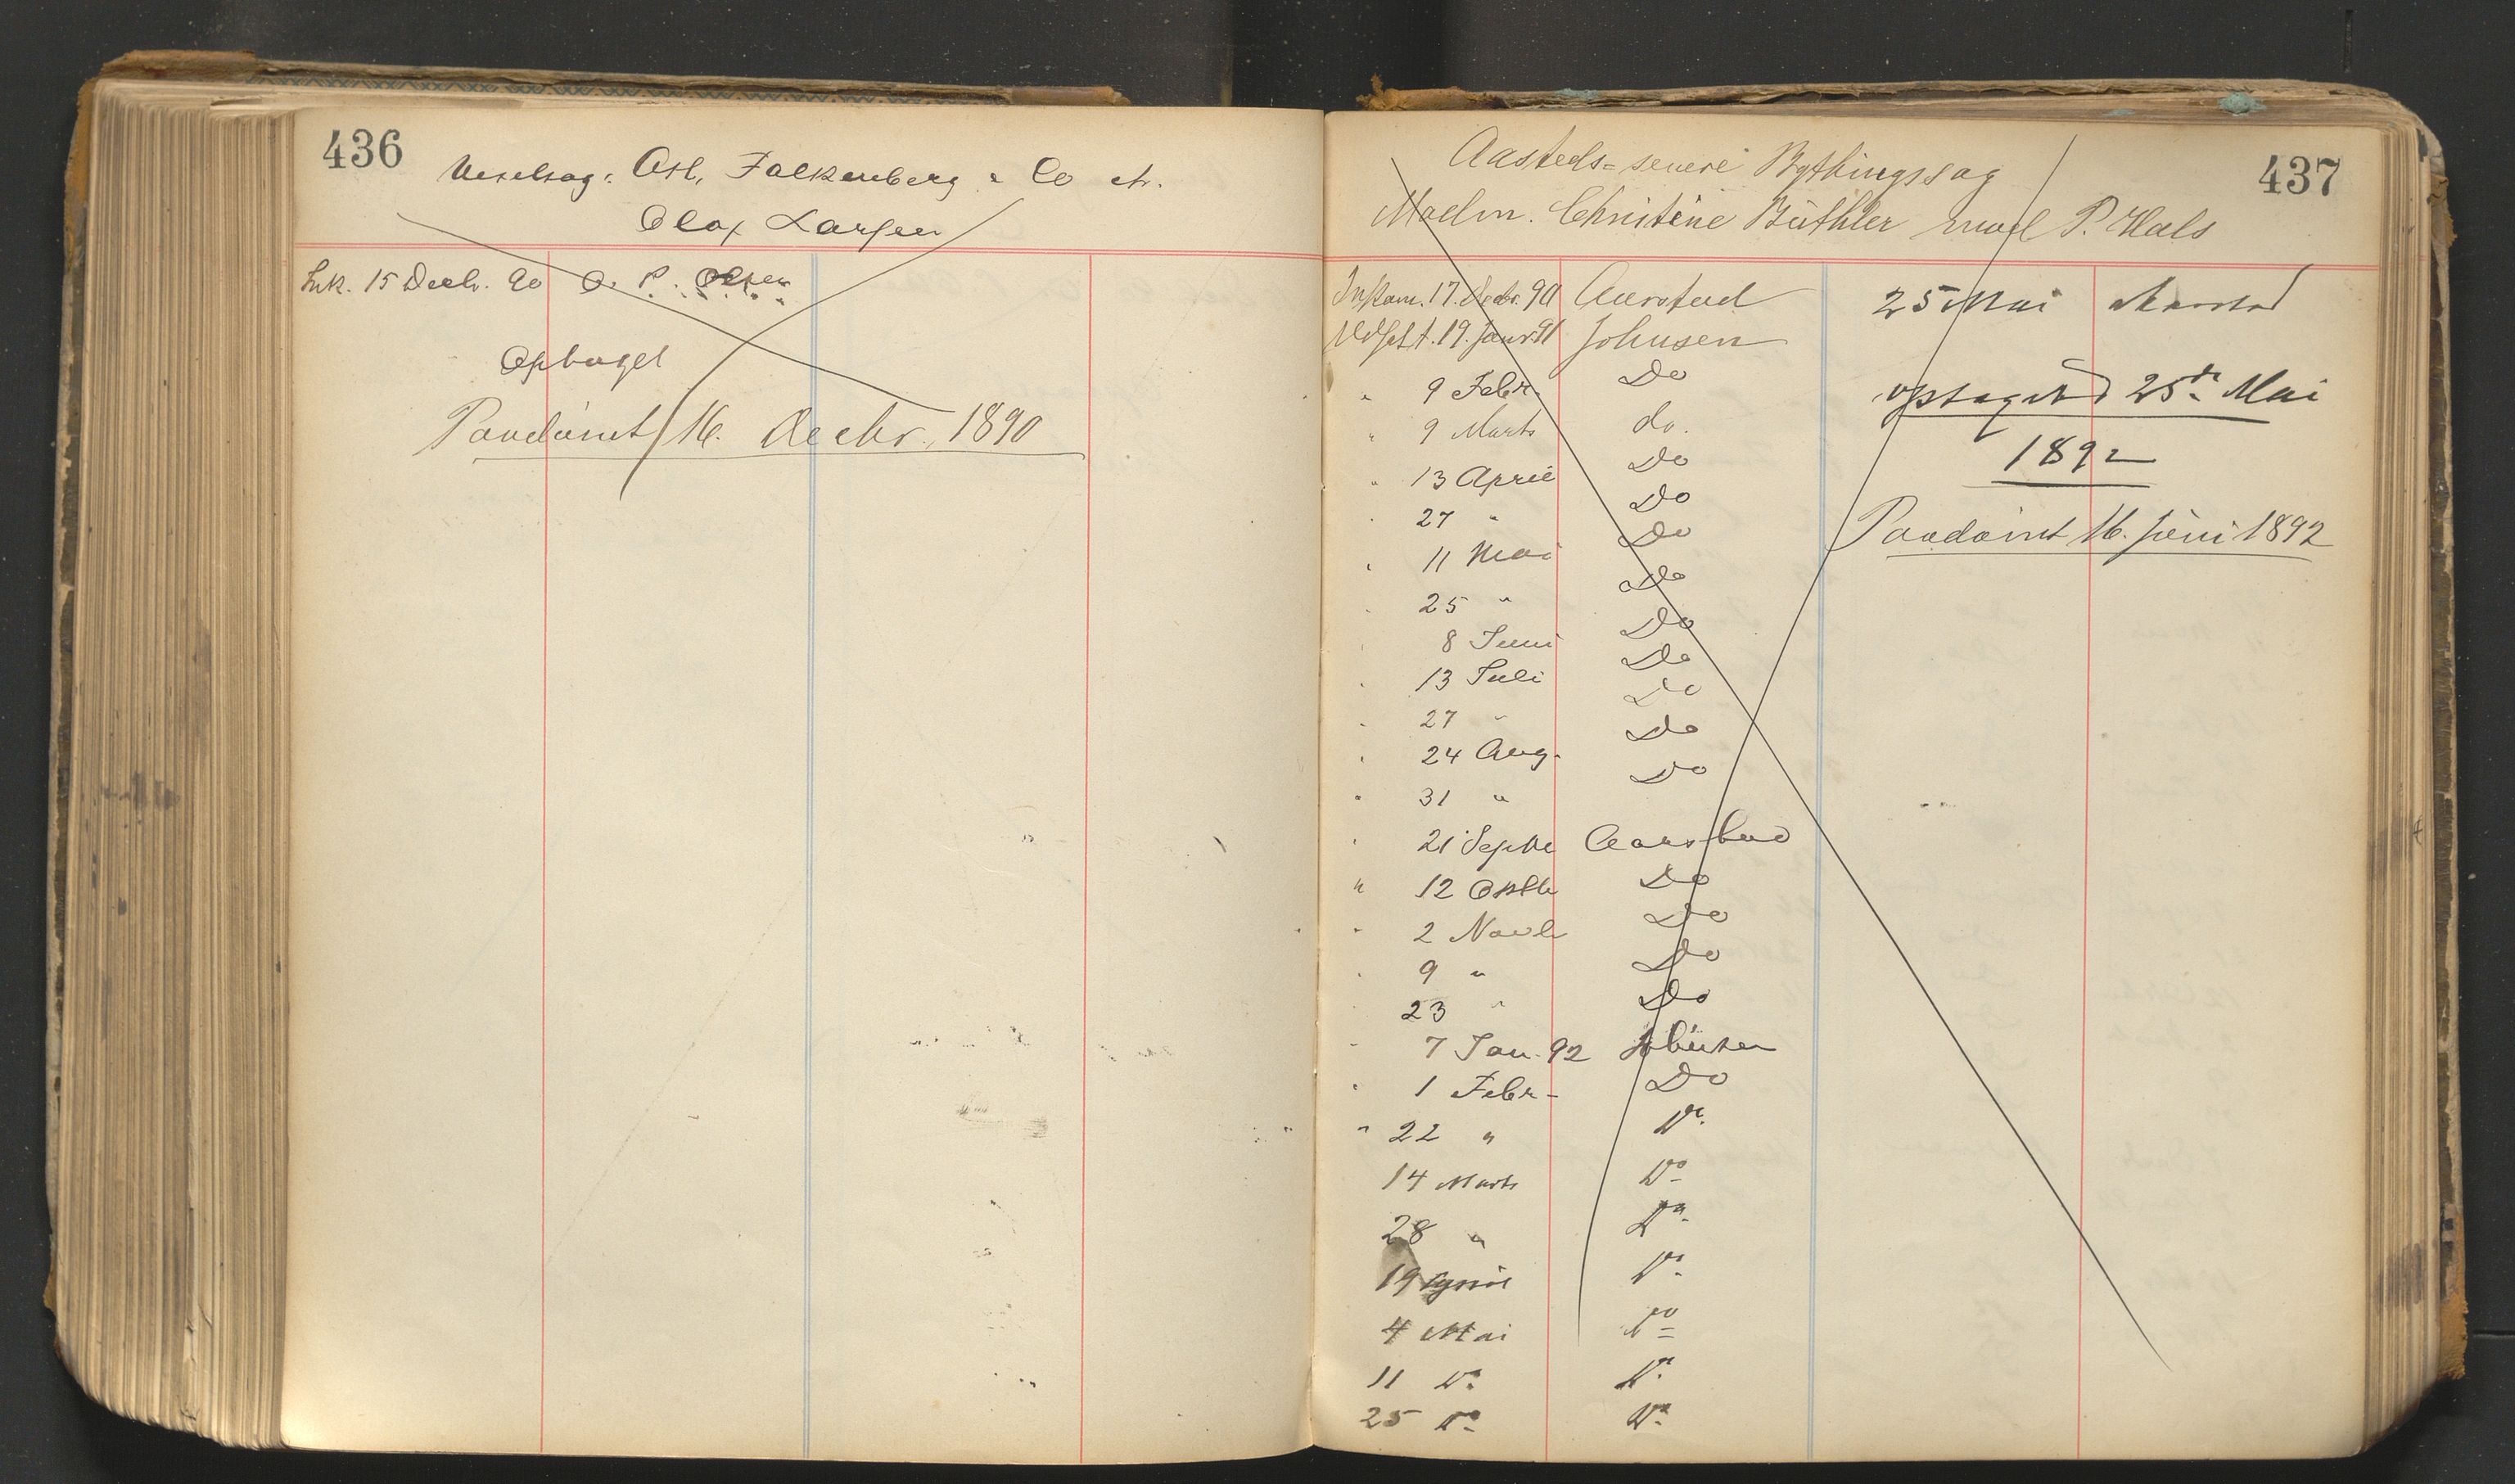 436
Vexelsag: Ost, Falkenberg & Co ctr.
Olaf Larsen
Ink. 15 Decbr. 90 O. P. Olsen
Optaget
Paadømt 16. Decbr. 1890
437
Aasteds- senere Bythingssag
Madm. Christine Büthler mod P. Hals
Inkom. 17. Decbr. 90 Aarstad
Udsat t. 19. Januar 91 Johnsen
" 9 Febr. Do
" 9 Marts do.
" 13 April Do
" 27 " Do
" 11 Mai Do
" 25 " Do
" 8 Juni Do
" 13 Juli Do
" 27 " Do
" 24 Aug. Do
" 31 " Do
" 21 Septbr Aarstad
" 12 Octbr Do
" 2 Novbr Do
" 9 " Do
" 23 " Do
" 7 Jan. 92 Johnsen
" 1 Febr - Do
" 22 " Do
14 Marts Do
28 " Do
19 April Do
4 Mai Do
11 Do Do
25 Do Do
25 Mai Aarstad
optaget d 25de Mai
1892
Paadømt 16. Juni 1892